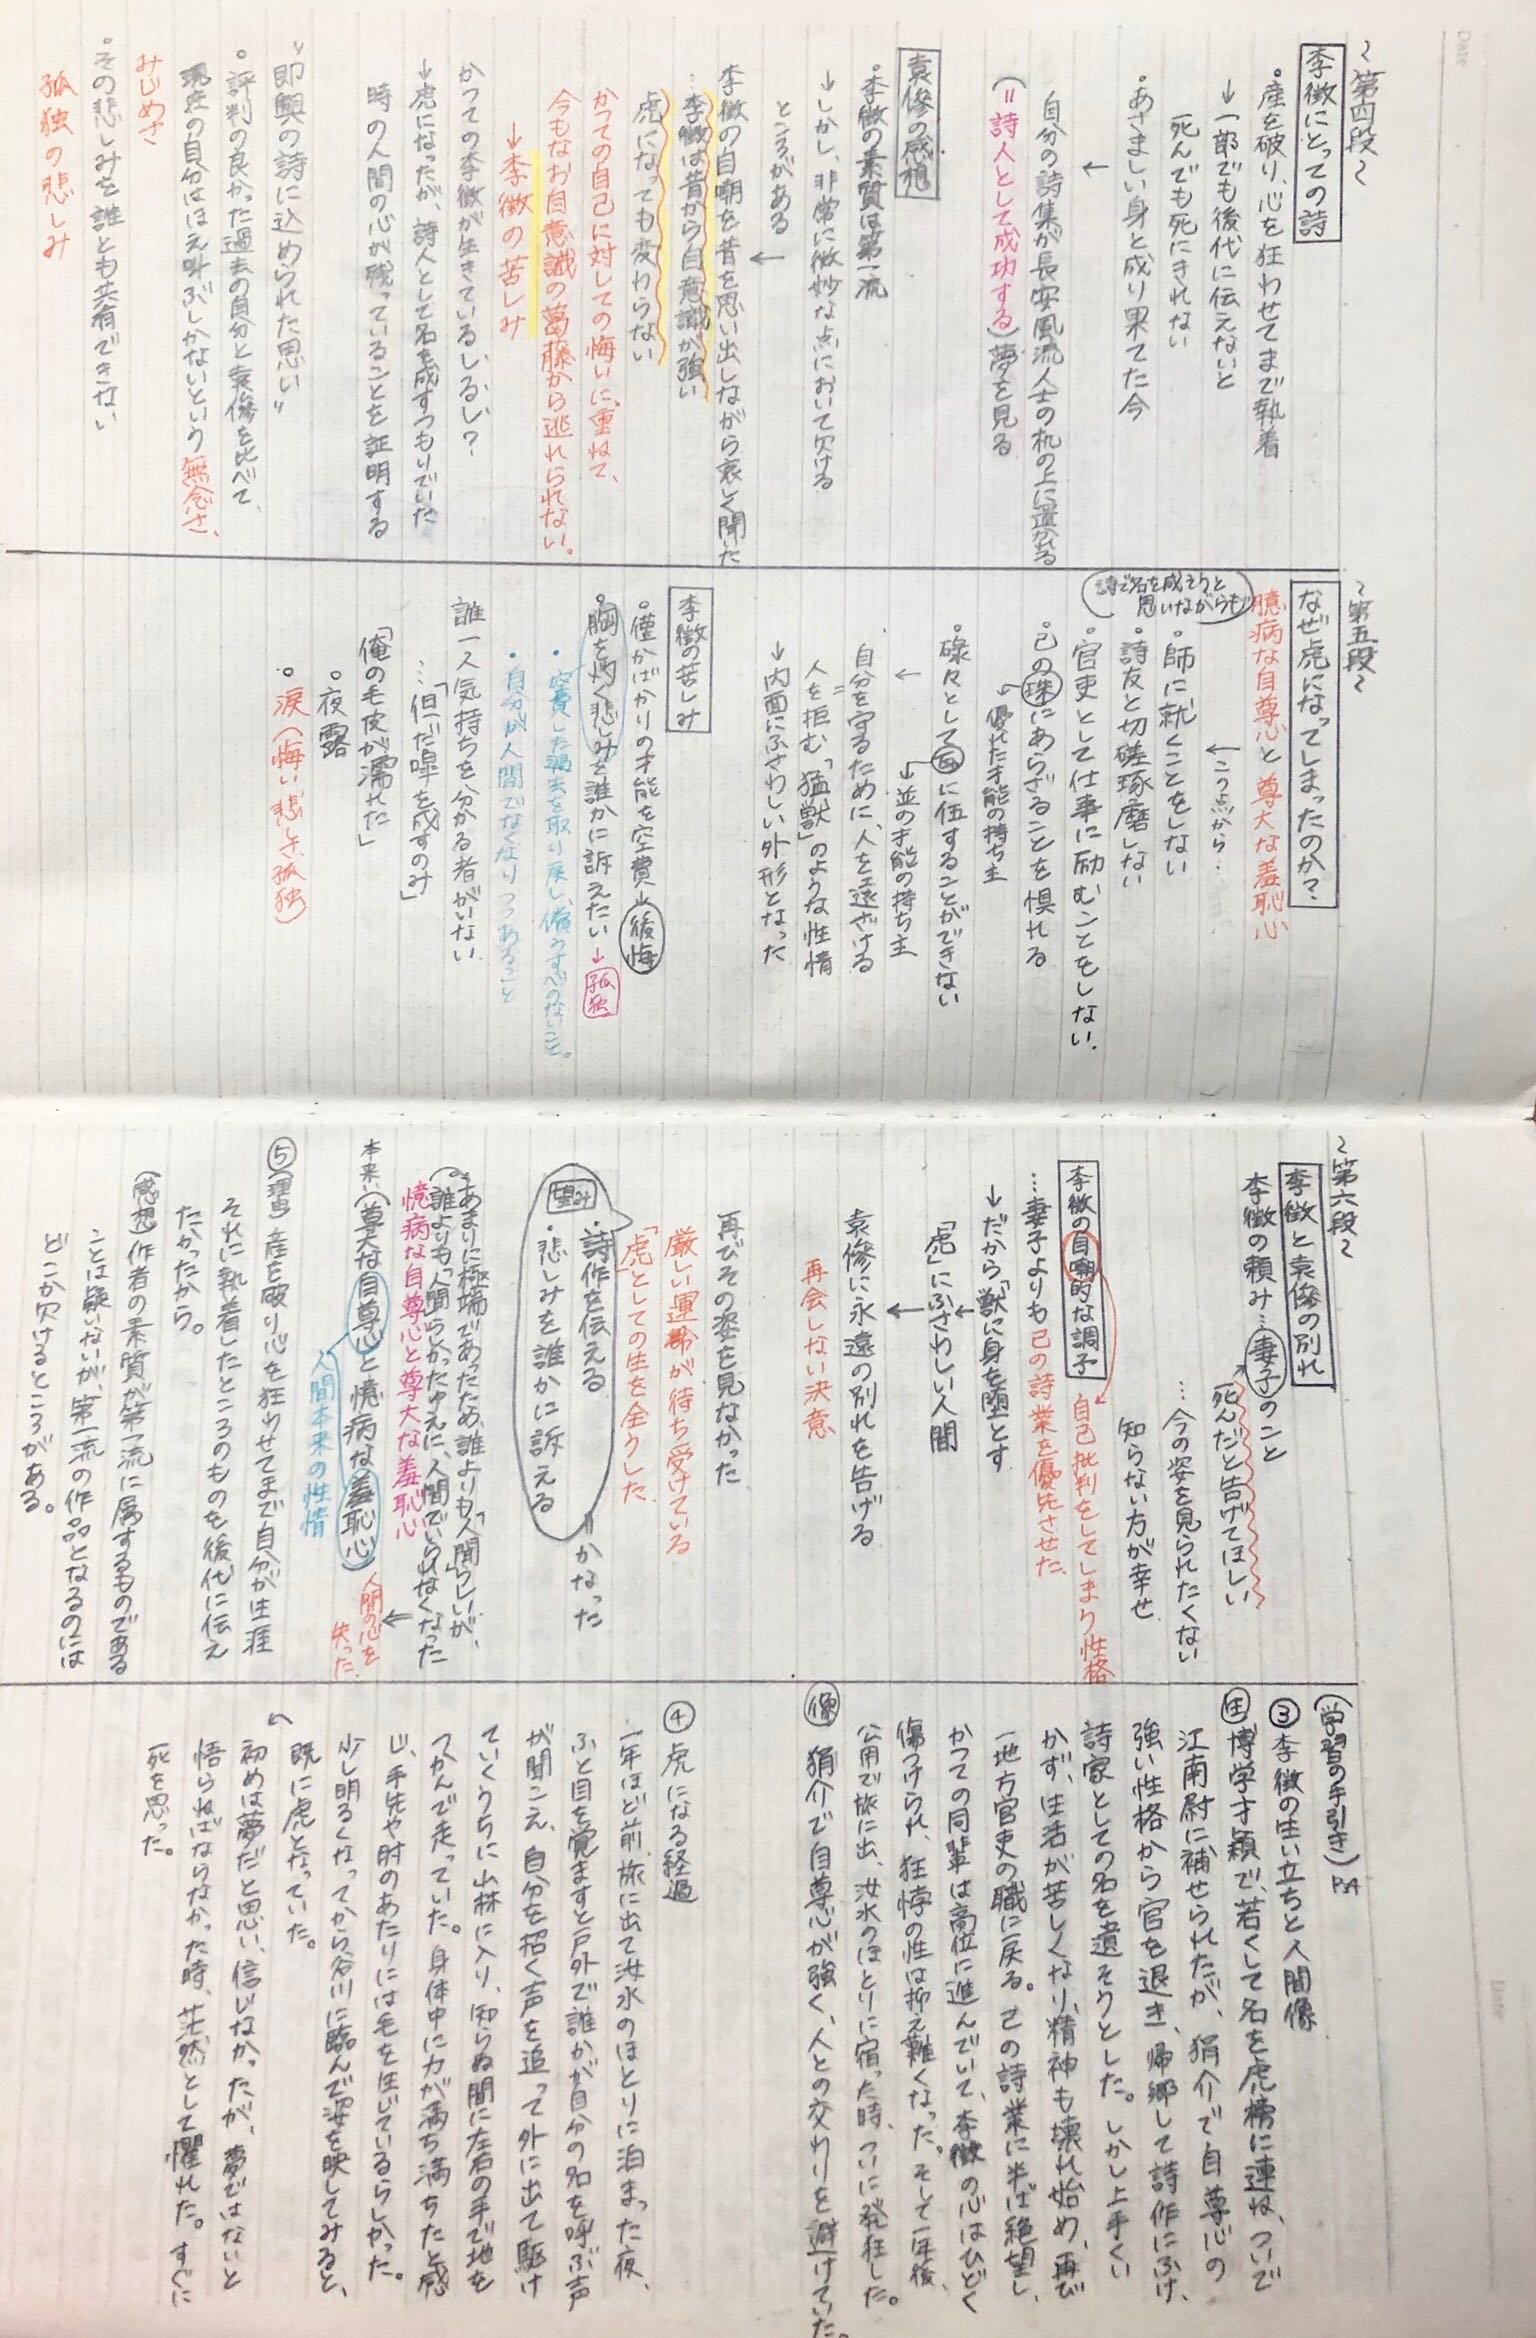 ~第四段~
李徴にとっての詩
・産を破り、心を狂わせてまで執着
→一部でも後代に伝えないと
死んでも死にきれない
・あさましい身と成り果てた今
↓
自分の詩集が長安風流人士の机の上に置かれる
(=詩人として成功する)夢を見る
袁傪の感想
・李徴の素質は第一流
→しかし、非常に微妙な点において欠ける
ところがある
↓
李徴の自嘲を昔を思い出しながら哀しく聞いた
…李徴は昔から自意識が強い
虎になっても変わらない
かつての自己に対しての悔いに重ねて、
今もなお自意識の葛藤から逃れられない。
→李徴の苦しみ
かつての李徴が生きているしるし?
→虎になったが、詩人として名を成すつもりでいた
時の人間の心が残っていることを証明する
"即興の詩に込められた思い"
・評判の良かった過去の自分と袁傪を比べて、
現在の自分はほえ叫ぶしかないという無念さ、
みじめさ
・その悲しみを誰とも共有できない
孤独の悲しみ
~第五段~
なぜ虎になってしまったのか?
臆病な自尊心と尊大な羞恥心
↓この点から…
詩で名を成そうと
思いながらも
・師に就くことをしない
・詩友と切磋琢磨しない
・官吏として仕事に励むことをしない.
・己の珠にあらざることを惧れる
→優れた才能の持ち主
・碌々として瓦に伍することができない
→並の才能の持ち主
↓
自分を守るために、人を遠ざける
=
人を拒む「猛獣」のような性情
→内面にふさわしい外形となった
李徴の苦しみ
・僅かばかりの才能を空費→後悔
・胸を灼く悲しみを誰かに訴えたい→孤独
・空費した過去を取り戻し、償うすべのないこと。
・自分が人間でなくなりつつあること
誰一人気持ちを分かる者がいない
…「但だ嘷を成すのみ」
「俺の毛皮が濡れた」
・夜露
・涙(悔い悲しさ、孤独)
~第六段~
李徴と袁傪の別れ
李徴の頼み…妻子のこと
死んだと告げてほしい
…今の姿を見られたくない
知らない方が幸せ
李徴の自嘲的な調子
自己批判をしてしまう性格
…妻子よりも己の詩業を優先させた
→だから「獣に身を堕とす
「虎」にふさわしい人間
↓
袁傪に永遠の別れを告げる
再会しない決意
再びその姿を見なかった
厳しい運命が待ち受けている
「虎」としての生を全うした
望み
・詩作を伝える
・悲しみを誰かに訴える
=かなった
あまりに極端であったため、誰よりも「人間」らしいが、
(誰よりも「人間らしかったゆえに、人間でいられなくなった
憶病な自尊心と尊大な羞恥心
↓
人間の心を
失った
本来(尊大な自尊心と憶病な羞恥心)
人間本来の性情
⑤(理由)産を破り心を狂わせてまで自分が生涯
それに執着したところのものを後代に伝え
たかったから。
(感想)作者の素質が第一流に属するものである
ことは疑いないが、第一流の作品となるのには
どこか欠けるところがある。
(学習の手引き)P.A
③李徴の生い立ちと人間像
㊤博学才穎で、若くして名を虎榜に連ね、ついで
江南尉に補せられたが、狷介で自尊心の
強い性格から官を退き、帰郷して詩作にふけ、
詩家としての名を遺そうとした。しかし上手くい
かず、生活が苦しくなり、精神も壊れ始め、再び
一地方官吏の職に戻る。己の詩業に半ば絶望し、
かつての同輩は高位に進んでいて、李徴の心はひどく
傷つけられ、狂悖の性は抑え難くなった。そして一年後、
公用で旅に出、汝水のほとりに宿った時、ついに発狂した。
像 狷介で自尊心が強く、人との交わりを避けていた。
④虎になる経過
一年ほど前、旅に出て汝水のほとりに泊まった夜、
ふと目を覚ますと戸外で誰かが自分の名を呼ぶ声
が聞こえ、自分を招く声を追って外に出て駆け
ていくうちに山林に入り、知らぬ間に左右の手で地を
つかんで走っていた。身体中に力が満ち満ちたと感
じ、手先や肘のあたりには毛を生じているらしかった。
少し明るくなってから谷川に臨んで姿を映してみると、
既に虎となっていた。
初めは夢だと思い、信じなかったが、夢ではないと
悟らねばならなかった時、茫然として懼れた。すぐに
死を思った。